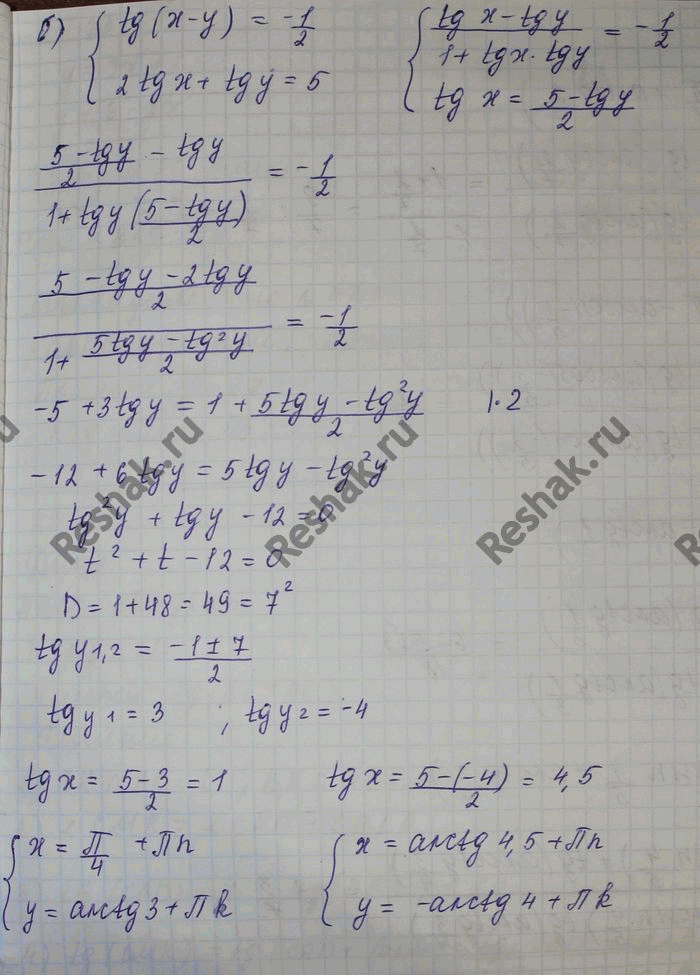 б) { tg (x-y) = -1/2
2 tg x + tg y = 5
{ (tg x - tg y)/(1 + tg x · tg y) = -1/2
tg x = (5 - tg y)/2
((5 - tg y)/2 - tg y)/(1 + tg y ((5 - tg y)/2)) = -1/2
((5 - tg y - 2 tg y)/2)/(1 + (5 tg y - tg² y)/2) = -1/2
-5 + 3 tg y = 1 + (5 tg y - tg² y)/2 | · 2
-12 + 6 tg y = 5 tg y - tg² y
tg² y + tg y - 12 = 0
t² + t - 12 = 0
D = 1 + 48 = 49 = 7²
tg y1,2 = (-1 ± 7)/2
tg y1 = 3 ; tg y2 = -4
tg x = (5 - 3)/2 = 1
tg x = (5 - (-4))/2 = 4,5
{ x = П/4 + Пn
y = arctg 3 + Пk
{ x = arctg 4,5 + Пn
y = -arctg 4 + Пk
Reshak.ru
Reshak.ru
Reshak.ru